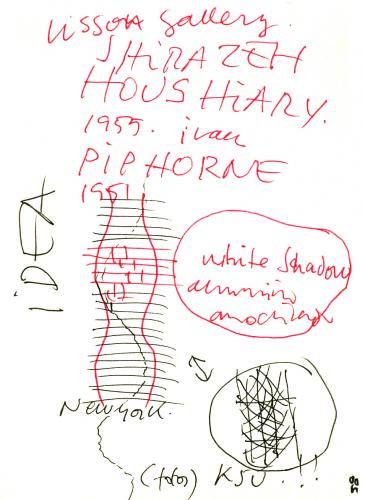 Lisson gallery.
SHiRAZEH
HOUSHiARY.
1955. iran
PiP HORNE
1951
iDEA
white Shadow
NEWYORK.
(foto) KSU...!!